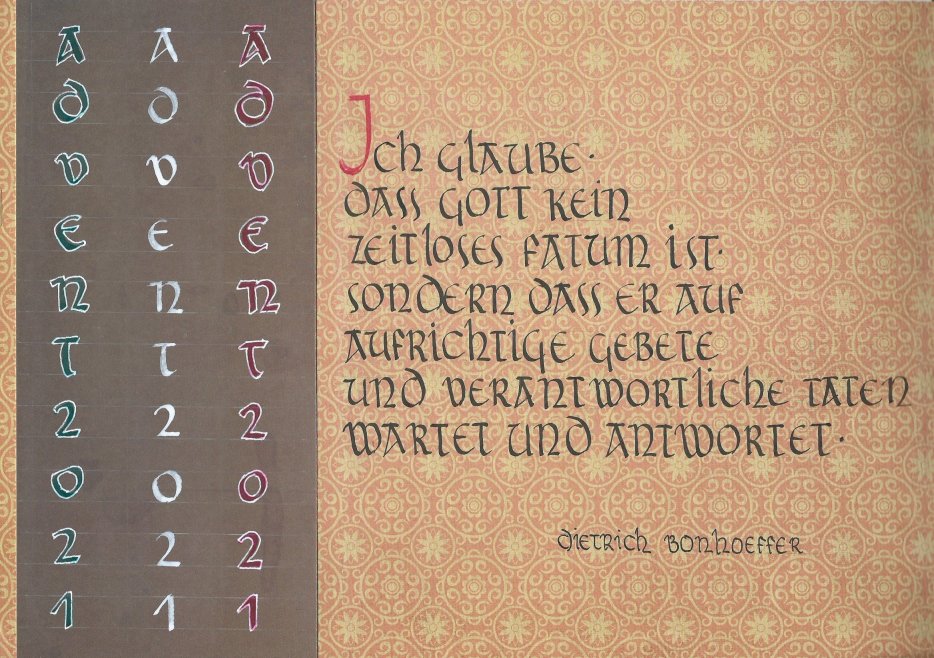 A A A
D D D
V V V
E E E
N N N
T T T
2 2 2
0 0 0
2 2 2
1 1 1
Ich glaube·
dass Gott kein
zeitloses Fatum ist·
sondern dass er auf
aufrichtige Gebete
und verantwortliche Taten
wartet und antwortet·
Dietrich Bonhoeffer